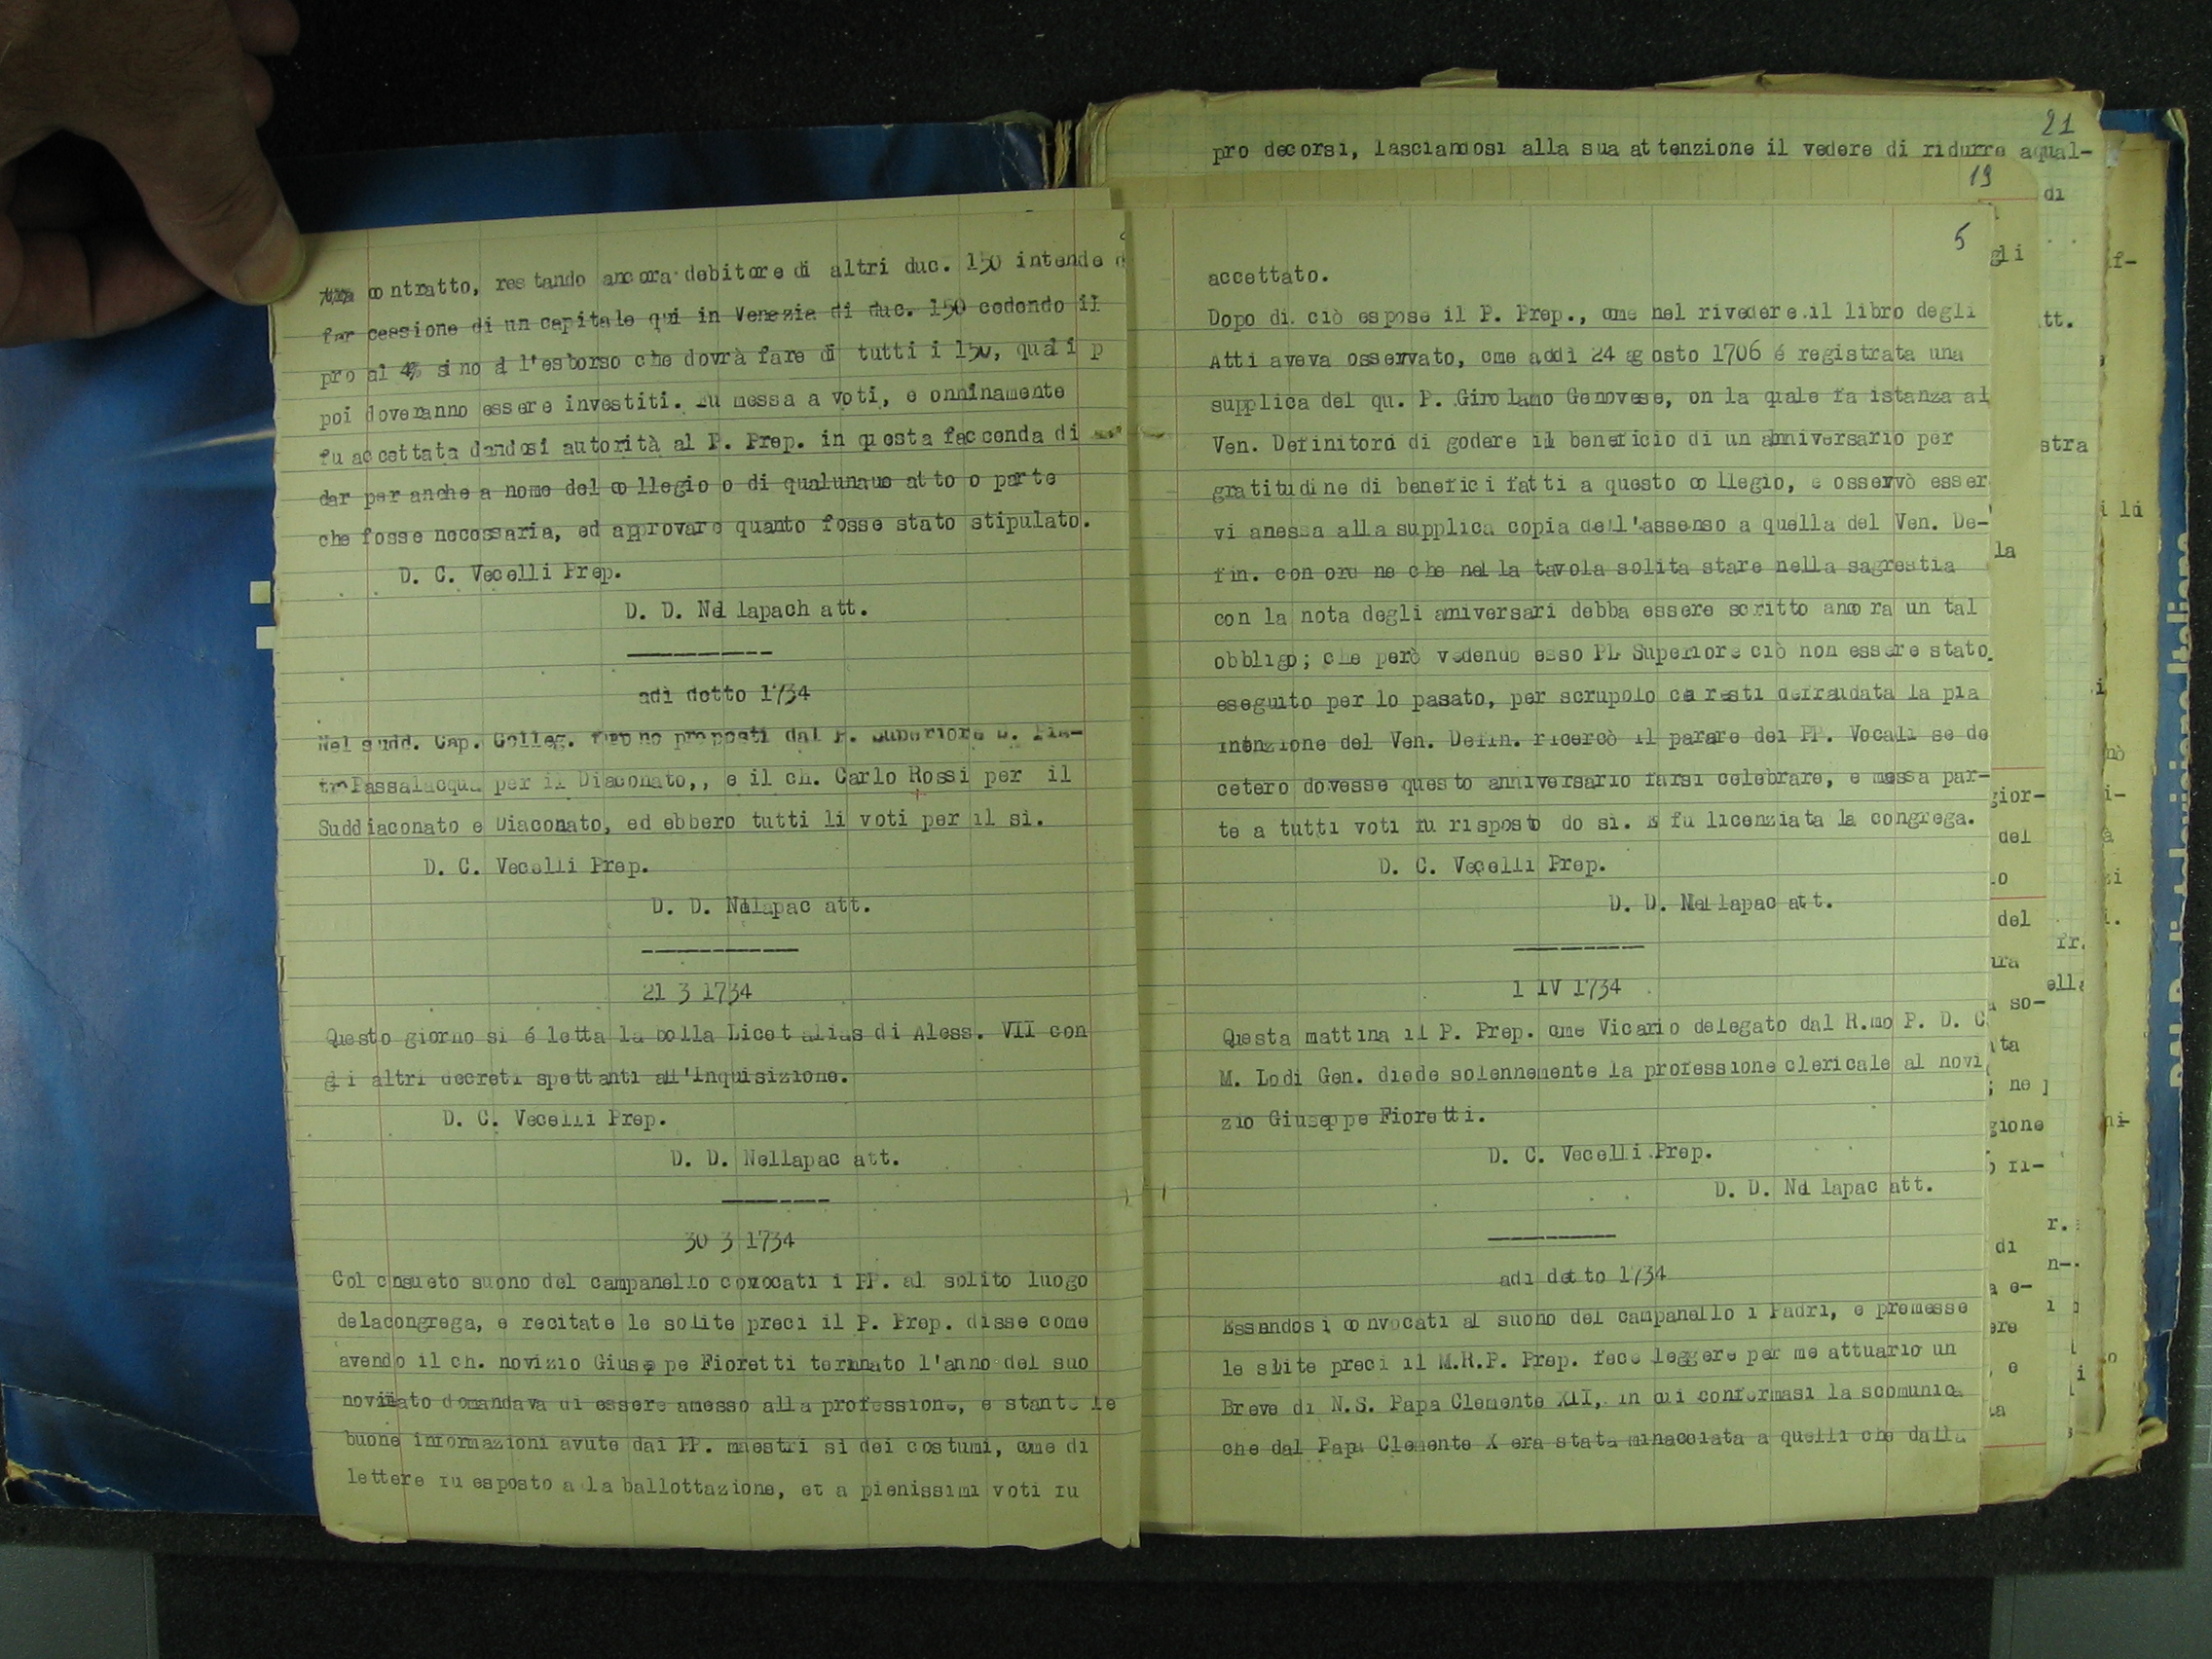 contratto, restando ancora debitore di altri duc. 150 intende
far cessione di un capitale qui in Venezia di duc. 150 cedendo il
pro al 4% sino al l'esborso che dovrà fare di tutti i 150, quali p
poi doveranno essere investiti. Fu messa a voti, e onninamente
fu accettata dandosi autorità al P. Prep. in questa faccenda di
dar par anche a nome del collegio o di qualunaue atto o parte
che fosse necessaria, ed approvare quanto fosse stato stipulato.
D. C. Vecelli Prep.
D. D. Nellapach att.
adì detto 1734
Nel sudd. Cap. Colleg. furono proposti dal P. Superiore D. Pie-
tro Passalacqua per il Diaconato,, e il ch. Carlo Rossi per il
Suddiaconato e Diaconato, ed ebbero tutti li voti per il sì.
D. C. Vecelli Prep.
D. D. Nellapac att.
21 3 1734
Questo giorno si é letta la bolla Licet alias di Aless. VII con
gli altri decreti spettanti all'Inquisizione.
D. C. Vecelli Prep.
D. D. Nellapac att.
30 3 1734
Col cnsueto suono del campanello convocati i PP. al solito luogo
delacongrega, e recitate le solite preci il P. Prep. disse come
avendo il ch. novizio Giuseppe Fioretti terminato l'anno del suo
noviziato domandava di essere amesso alla professione, e stante le
buone informazioni avute dai PP. maestri sì dei costumi, come di
lettere fu esposto a la ballottazione, et a pienissimi voti fu
21
pro decorsi, lasciandosi alla sua attenzione il vedere di ridurre aqual-
19
5
accettato.
Dopo di ciò espose il P. Prep., cme nel rivedere il libro degli
Atti aveva osservato, cme addì 24 agosto 1706 é registrata una
supplica del qu. P. Girolamo Genovese, on la quale fa istanza al
Ven. Definitoro di godere il beneficio di un anniversario per
gratitudine di benefici fatti a questo collegio, e osservò esser
vi anessa alla supplica copia dell'assenso a quella del Ven. De-
fin. con ordine che nella tavola solita stare nella sagrestia
con la nota degli aniversari debba essere scritto ancora un tal
obbligo; che però vedendo esso PL Superiore ciò non essere stato
eseguito per lo pasato, per scrupolo che resti defraudata la pia
intenzione del Ven. Defin. ricercò il parare dei PP. Vocali se de
cetero dovesse questo anniversario farsi celebrare, e messa par-
te a tutti voti fu risposto do sì. E fu licenziata la congrega.
D. C. Vecelli Prep.
D. D. Nellapac att.
1 IV 1734
Questa mattina il P. Prep. cme Vicario delegato dal R.mo P. D. C
M. Lodi Gen. diede solennemente la professione clericale al novi
zio Giuseppe Fioretti.
D. C. Vecelli Prep.
D. D. Nellapac att.
adì detto 1734
Essendosi convocati al suono del campanello i Padri, e premesse
le slite preci il M.R.P. Prep. fece leggere per me attuario un
Breve di N.S. Papa Clemente XII, in cui confermasi la scomunica
che dal Papa Clemente X era stata minacciata a quelli che dalla